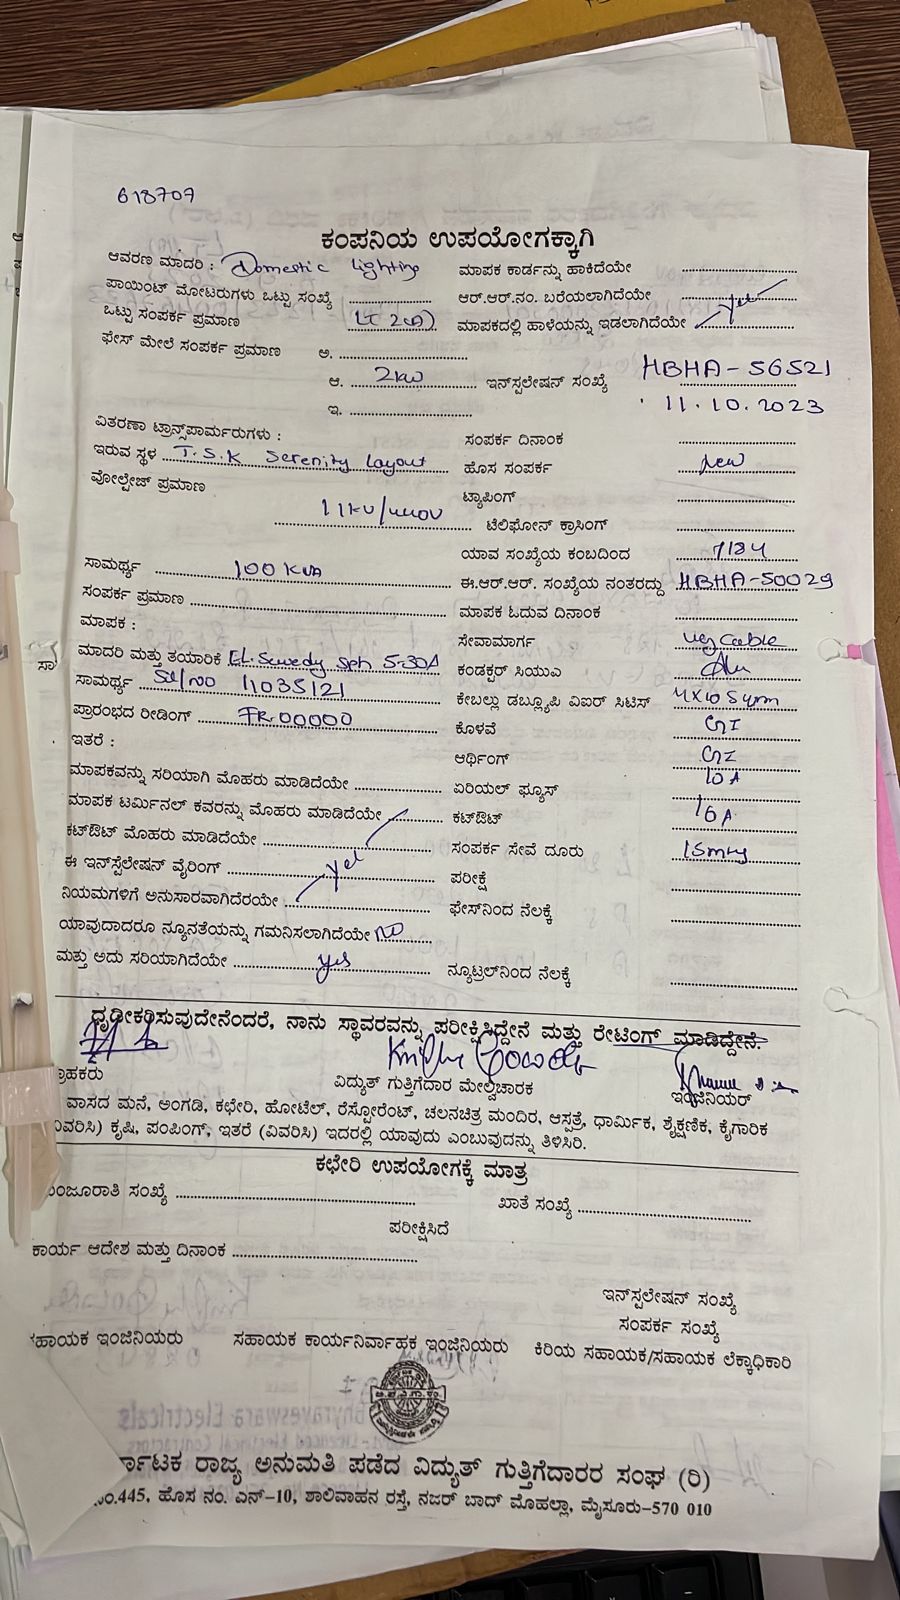 618707
ಕಂಪನಿಯ ಉಪಯೋಗಕ್ಕಾಗಿ
ಆವರಣ ಮಾದರಿ : Domestic Lighting ಮಾಪಕ ಕಾರ್ಡನ್ನು ಹಾಕಿದೆಯೇ
ಪಾಯಿಂಟ್ ಮೋಟರುಗಳು ಒಟ್ಟು ಸಂಖ್ಯೆ ಆರ್.ಆರ್.ನಂ. ಬರೆಯಲಾಗಿದೆಯೇ yes
ಒಟ್ಟು ಸಂಪರ್ಕ ಪ್ರಮಾಣ ಮಾಪಕದಲ್ಲಿ ಹಾಳೆಯನ್ನು ಇಡಲಾಗಿದೆಯೇ
ಫೇಸ್ ಮೇಲೆ ಸಂಪರ್ಕ ಪ್ರಮಾಣ ಅ.
ಆ. 2kw ಇನ್‌ಸ್ಪಲೇಷನ್ ಸಂಖ್ಯೆ HBHA-56521
ಇ. 11.10.2023
ವಿತರಣಾ ಟ್ರಾನ್ಸ್‌ಪಾರ್ಮರುಗಳು : ಸಂಪರ್ಕ ದಿನಾಂಕ
ಇರುವ ಸ್ಥಳ T.S.K Serenity Layout ಹೊಸ ಸಂಪರ್ಕ new
ವೋಲ್ಟೇಜ್ ಪ್ರಮಾಣ ಟ್ಯಾಪಿಂಗ್
11kv/440V ಟೆಲಿಫೋನ್ ಕ್ರಾಸಿಂಗ್
ಯಾವ ಸಂಖ್ಯೆಯ ಕಂಬದಿಂದ
ಸಾಮರ್ಥ್ಯ 100 KVA ಈ.ಆರ್.ಆರ್. ಸಂಖ್ಯೆಯ ನಂತರದ್ದು HBHA-50029
ಸಂಪರ್ಕ ಪ್ರಮಾಣ ಮಾಪಕ ಓದುವ ದಿನಾಂಕ
ಮಾಪಕ : ಸೇವಾಮಾರ್ಗ ug Cable
ಮಾದರಿ ಮತ್ತು ತಯಾರಿಕೆ EL.Sewedy Sph 5-30A ಕಂಡಕ್ಟರ್ ಸಿಯುಎ Alu
ಸಾಮರ್ಥ್ಯ Sl/no 11035121 ಕೇಬಲ್ಲು ಡಬ್ಲ್ಯೂಪಿ ವಿಐಆರ್ ಸಿಟಿಸ್ 4x10 Sqmm
ಪ್ರಾರಂಭದ ರೀಡಿಂಗ್ FR.00000 ಕೊಳವೆ GI
ಇತರೆ : ಆರ್ಥಿಂಗ್ GI
ಮಾಪಕವನ್ನು ಸರಿಯಾಗಿ ಮೊಹರು ಮಾಡಿದೆಯೇ ಏರಿಯಲ್ ಫ್ಯೂಸ್ 10A
ಮಾಪಕ ಟರ್ಮಿನಲ್ ಕವರನ್ನು ಮೊಹರು ಮಾಡಿದೆಯೇ ಕಟ್‌ಔಟ್
ಕಟ್‌ಔಟ್ ಮೊಹರು ಮಾಡಿದೆಯೇ ಸಂಪರ್ಕ ಸೇವೆ ದೂರು
ಈ ಇನ್‌ಸ್ಪೆಲೇಷನ್ ವೈರಿಂಗ್ yes ಪರೀಕ್ಷೆ
ನಿಯಮಗಳಿಗೆ ಅನುಸಾರವಾಗಿದೆರಯೇ ಫೇಸ್‌ನಿಂದ ನೆಲಕ್ಕೆ
ಯಾವುದಾದರೂ ನ್ಯೂನತೆಯನ್ನು ಗಮನಿಸಲಾಗಿದೆಯೇ no
ಮತ್ತು ಅದು ಸರಿಯಾಗಿದೆಯೇ yes ನ್ಯೂಟ್ರಲ್‌ನಿಂದ ನೆಲಕ್ಕೆ
ಧೃಢೀಕರಿಸುವುದೇನೆಂದರೆ, ನಾನು ಸ್ಥಾವರವನ್ನು ಪರೀಕ್ಷಿಸಿದ್ದೇನೆ ಮತ್ತು ರೇಟಿಂಗ್ ಮಾಡಿದ್ದೇನೆ.
ಗ್ರಾಹಕರು ವಿದ್ಯುತ್ ಗುತ್ತಿಗೆದಾರ ಮೇಲ್ವಿಚಾರಕ ಇಂಜಿನಿಯರ್
ವಾಸದ ಮನೆ, ಅಂಗಡಿ, ಕಛೇರಿ, ಹೋಟೆಲ್, ರೆಸ್ಟೋರೆಂಟ್, ಚಲನಚಿತ್ರ ಮಂದಿರ, ಆಸ್ಪತ್ರೆ, ಧಾರ್ಮಿಕ, ಶೈಕ್ಷಣಿಕ, ಕೈಗಾರಿಕ
(ವಿವರಿಸಿ) ಕೃಷಿ, ಪಂಪಿಂಗ್, ಇತರೆ (ವಿವರಿಸಿ) ಇದರಲ್ಲಿ ಯಾವುದು ಎಂಬುವುದನ್ನು ತಿಳಿಸಿರಿ.
ಕಛೇರಿ ಉಪಯೋಗಕ್ಕೆ ಮಾತ್ರ
ಮಂಜೂರಾತಿ ಸಂಖ್ಯೆ ಖಾತೆ ಸಂಖ್ಯೆ
ಪರೀಕ್ಷಿಸಿದೆ
ಕಾರ್ಯ ಆದೇಶ ಮತ್ತು ದಿನಾಂಕ
ಇನ್‌ಸ್ಪಲೇಷನ್ ಸಂಖ್ಯೆ
ಸಂಪರ್ಕ ಸಂಖ್ಯೆ
ಸಹಾಯಕ ಇಂಜಿನಿಯರು ಸಹಾಯಕ ಕಾರ್ಯನಿರ್ವಾಹಕ ಇಂಜಿನಿಯರು ಕಿರಿಯ ಸಹಾಯಕ/ಸಹಾಯಕ ಲೆಕ್ಕಾಧಿಕಾರಿ
ರ್ನಾಟಕ ರಾಜ್ಯ ಅನುಮತಿ ಪಡೆದ ವಿದ್ಯುತ್ ಗುತ್ತಿಗೆದಾರರ ಸಂಘ (ರಿ)
ನಂ.445, ಹೊಸ ನಂ. ಎನ್-10, ಶಾಲಿವಾಹನ ರಸ್ತೆ, ನಜರ್ ಬಾದ್ ಮೊಹಲ್ಲಾ, ಮೈಸೂರು-570 010